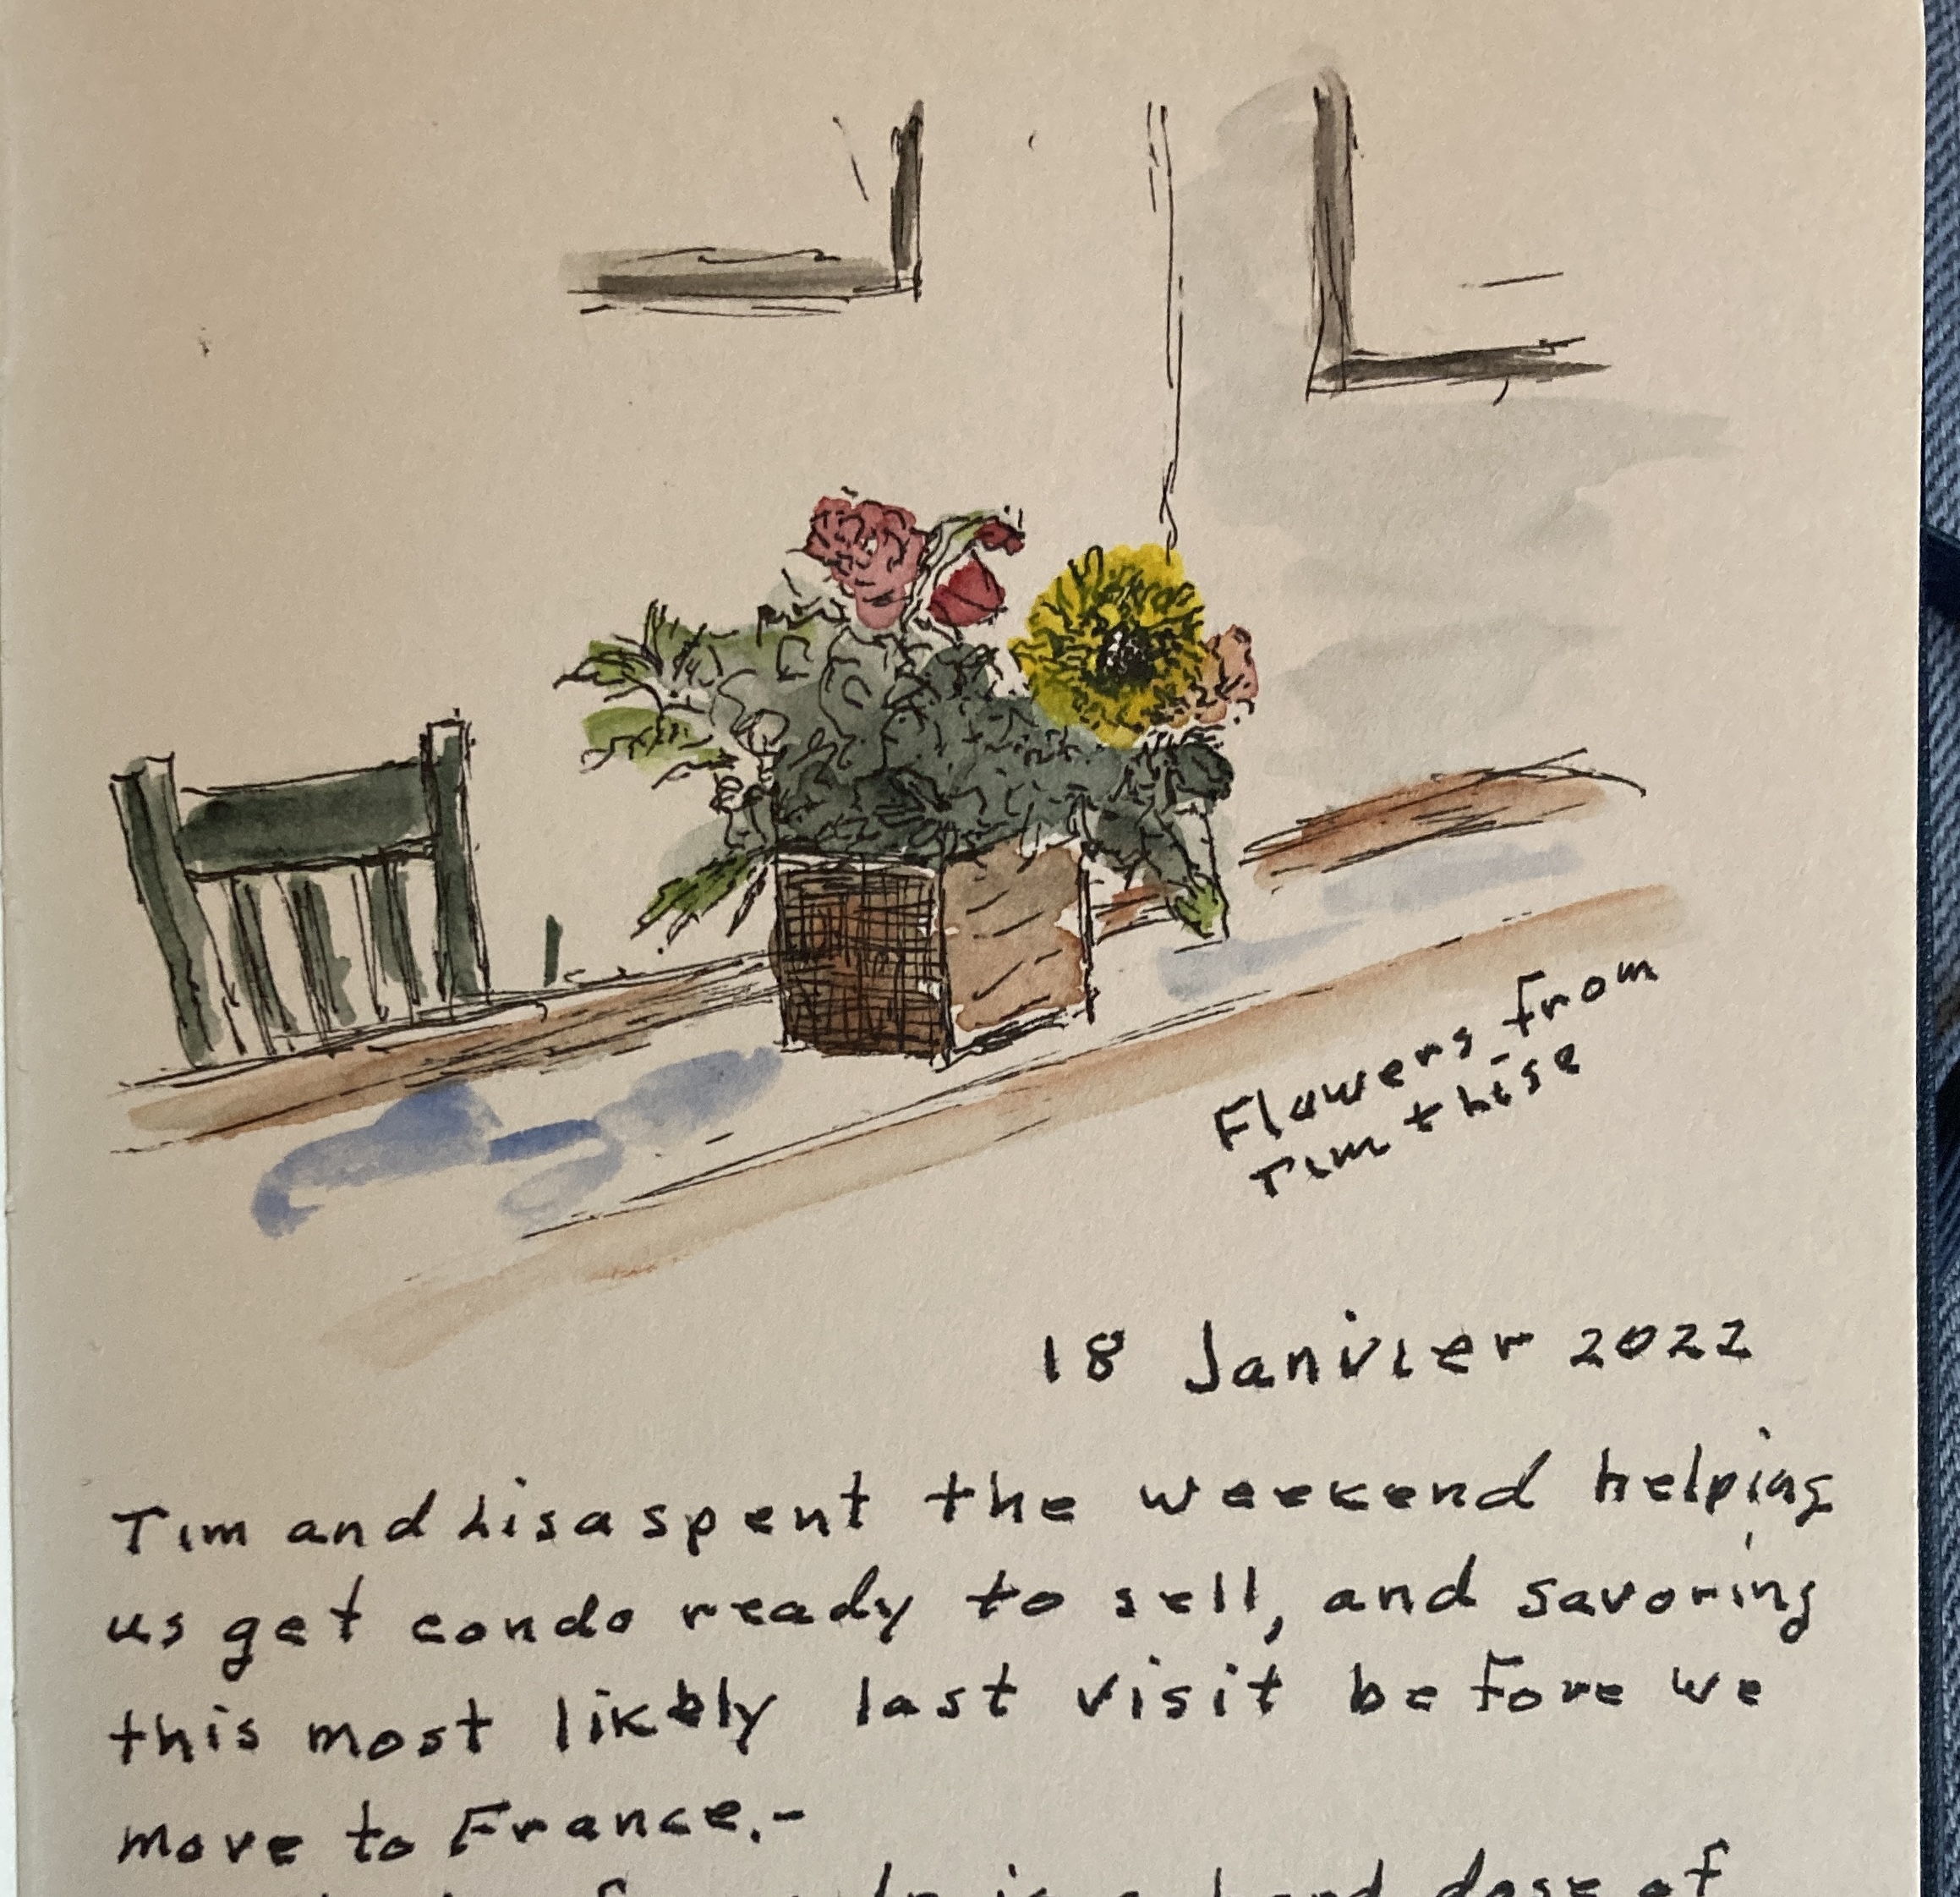 Flowers from
Tim these
18 Janivier 2022
Tim and Lisa spent the weekend helping
us get condo ready to sell, and savoring
this most likely last visit before we
move to France.-
is a hard dose of